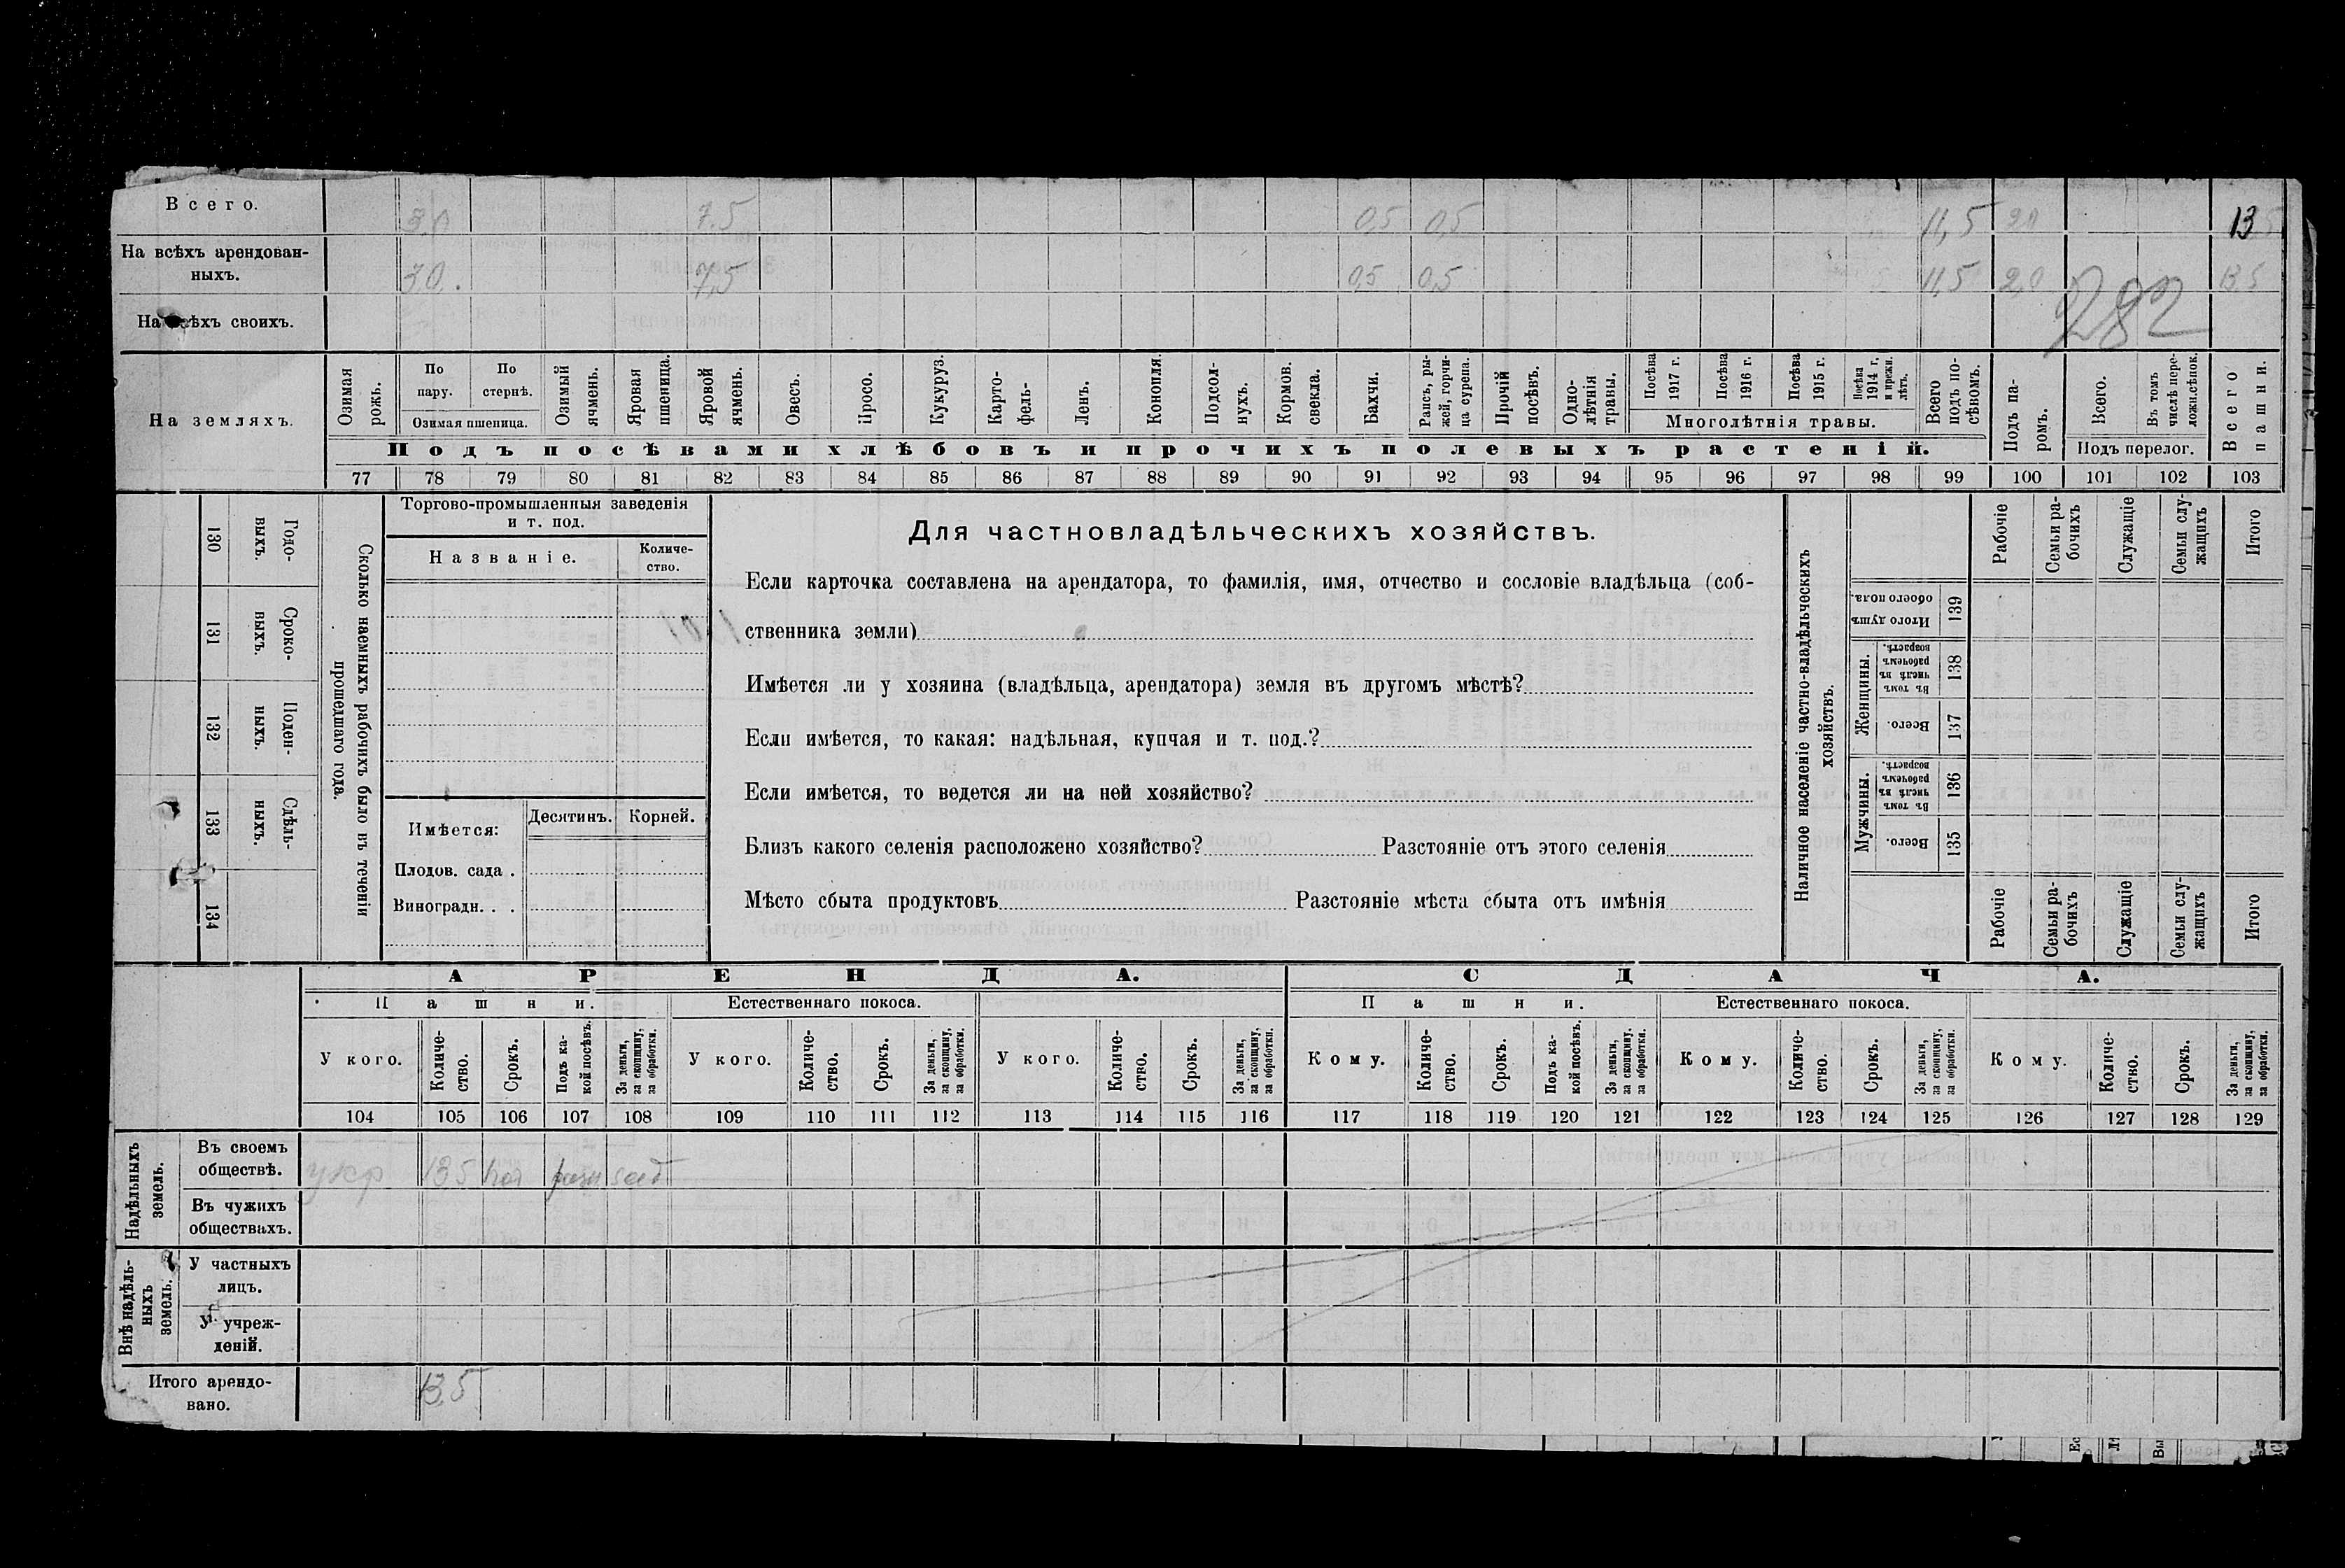 Всего. 3,0 7.5 0,5 0,5 11,5 2,0 13,5
На всѣхъ арендован-
ныхъ. 3,0. 7,5 0,5 0,5 11,5 2,0 13,5
На всѣхъ своихъ. 282
На земляхъ.
Озимая
рожь.
По
пару.
По
стернѣ.
Озимая пшеница.
Озимый
ячмень.
Яровая
пшеница.
Яровой
ячмень.
Овесъ.
Просо.
Кукуруз.
Карто-
фель.
Ленъ.
Конопля.
Подсол-
нухъ.
Кормов.
свекла.
Бахчи.
Рапсъ, ры-
жей, горчи-
ца сурепа.
Прочій
посѣвъ.
Одно-
лѣтнія
травы.
Посѣва
1917 г.
Посѣва
1916 г.
Посѣва
1915 г.
Посѣва
1914 г.
и прежн.
лѣтъ.
Многолѣтнія травы.
Всего
подъ по-
сѣвомъ.
Подъ посѣвами хлѣбовъ и прочихъ полевыхъ растеній.
Подъ па-
ромъ.
Всего.
Въ томъ
числѣ пере-
ложн.сѣнок.
Подъ перелог.
Всего
пашни.
77 78 79 80 81 82 83 84 85 86 87 88 89 90 91 92 93 94 95 96 97 98 99 100 101 102 103
130
Годо-
выхъ.
131
Сроко-
выхъ.
132
Поден-
ныхъ.
133
Сдѣль-
ныхъ.
134
Сколько наемныхъ рабочихъ было въ теченіи
прошедшаго года.
Торгово-промышленныя заведенія
и т. под.
Названіе.
Количе-
ство.
Имѣется:
Десятинъ. Корней.
Плодов. сада .
Виноградн. . .
Для частновладѣльческихъ хозяйствъ.
Если карточка составлена на арендатора, то фамилія, имя, отчество и сословіе владѣльца (соб-
ственника земли)
Имѣется ли у хозяина (владѣльца, арендатора) земля въ другомъ мѣстѣ?
Если имѣется, то какая: надѣльная, купчая и т. под.?
Если имѣется, то ведется ли на ней хозяйство?
Близъ какого селенія расположено хозяйство? Разстояніе отъ этого селенія
Мѣсто сбыта продуктовъ Разстояніе мѣста сбыта отъ имѣнія
Наличное населеніе частно-владѣльческихъ
хозяйствъ.
Рабочіе
Семьи ра-
бочихъ
Служащіе
Семьи слу-
жащихъ
Итого
Итого душъ
обоего пола.
139
Женщины.
Въ томъ
числѣ въ
рабочемъ
возрастѣ.
138
Всего.
137
Мужчины.
Въ томъ
числѣ въ
рабочемъ
возрастѣ.
136
Всего.
135
Рабочіе
Семьи ра-
бочихъ
Служащіе
Семьи слу-
жащихъ
Итого
АРЕНДА. СДАЧА.
Пашни. Естественнаго покоса. Пашни. Естественнаго покоса.
У кого.
Количе-
ство.
Срокъ.
Подъ ка-
кой посѣвъ.
За деньги,
за скопщину,
за обработки.
У кого.
Количе-
ство.
Срокъ.
За деньги,
за скопщину,
за обработки.
У кого.
Количе-
ство.
Срокъ.
За деньги,
за скопщину,
за обработки.
Кому.
Количе-
ство.
Срокъ.
Подъ ка-
кой посѣвъ.
За деньги,
за скопщину,
за обработки.
Кому.
Количе-
ство.
Срокъ.
За деньги,
за скопщину,
за обработки.
Кому.
Количе-
ство.
Срокъ.
За деньги,
за скопщину,
за обработки.
104 105 106 107 108 109 110 111 112 113 114 115 116 117 118 119 120 121 122 123 124 125 126 127 128 129
Надѣльныхъ
земель.
Въ своемъ
обществѣ. укр 13,5
Въ чужихъ
обществахъ.
Внѣ надѣль-
ныхъ
земель.
У частныхъ
лицъ.
У учреж-
деній.
Итого арендо-
вано. 13,5